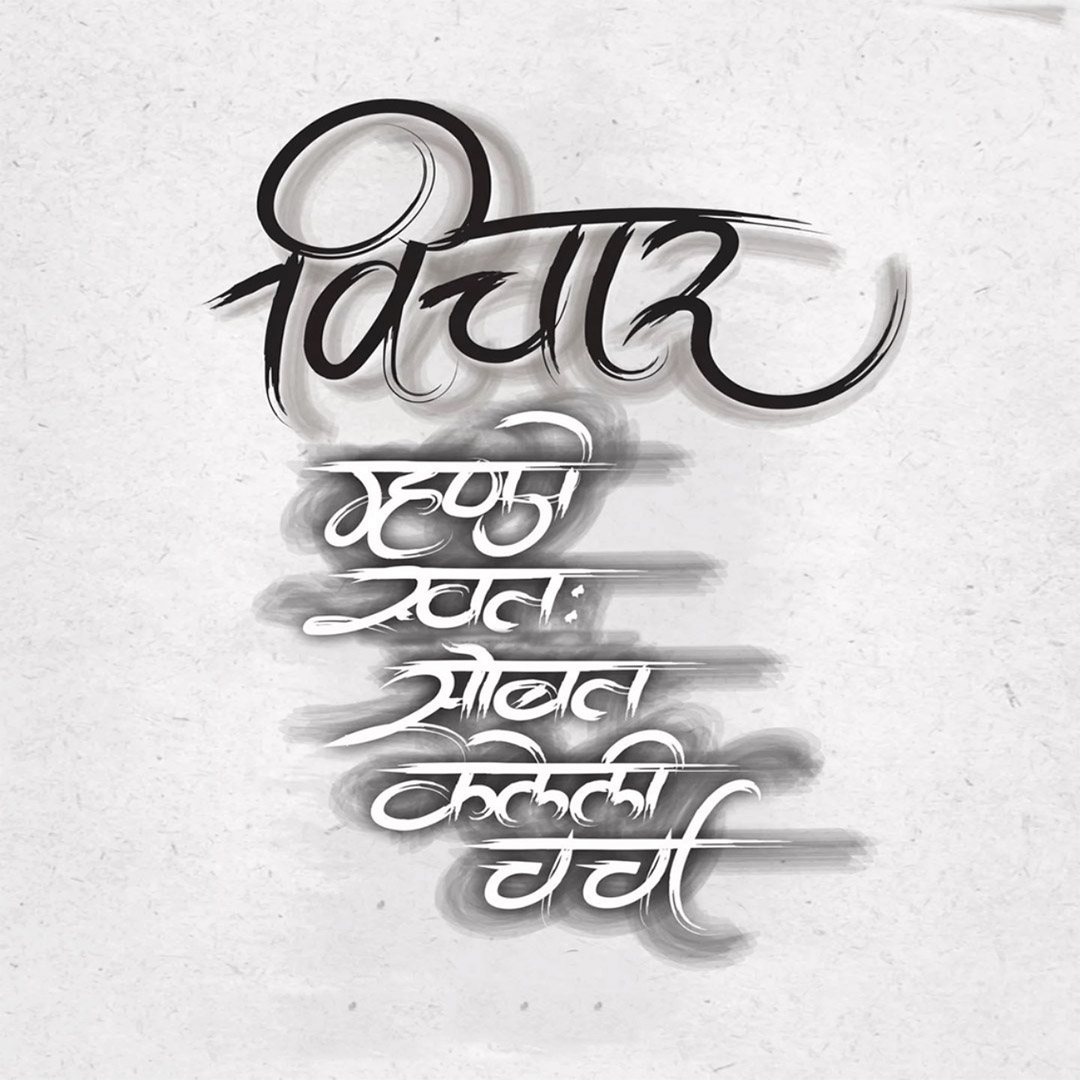 विचार
म्हणजे
स्वतः
सोबत
केलेली
चर्चा